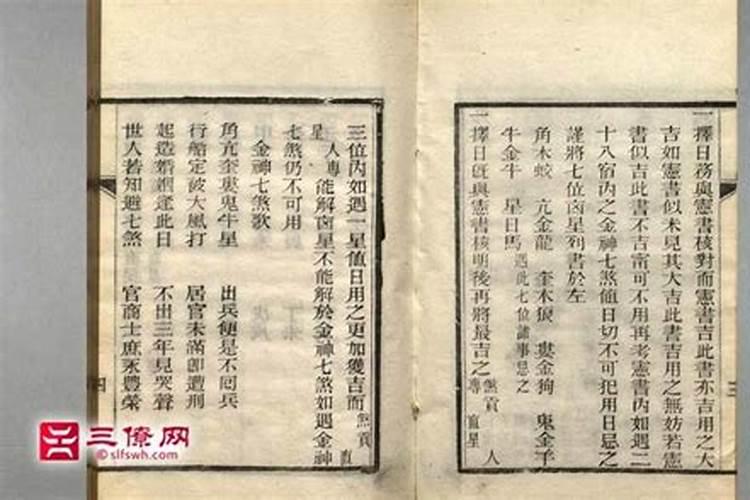 一擇日務與憲書核對而憲書吉此書亦吉用之大
吉如憲書似未見其大吉此書吉用之無妨若憲
書似吉此書不吉甯可不用再考憲書內如遇二
十八宿內之金神七煞値日切不可犯用日忌之
謹將七位凶星列書於左
角木蛟 亢金龍 奎木狼 婁金狗 鬼金羊
牛金牛 星日馬 遇此七位諸事忌之
一擇日旣與憲書核明後再將最吉之煞貢專直星人
三
三位內如遇一星值日用之更加獲吉而煞貢直
星人專能解凶星不能解於金神七煞如遇金神
七煞仍不可用
金神七煞歌
角亢奎婁鬼牛星 出兵便是不囘兵
行船定被大風打 居官未滿卽遭刑
起造婚姻逢此日 不出三年見哭聲
世人若知避七煞 官商士庶永豐榮
四
三僚网
©slfswh.com